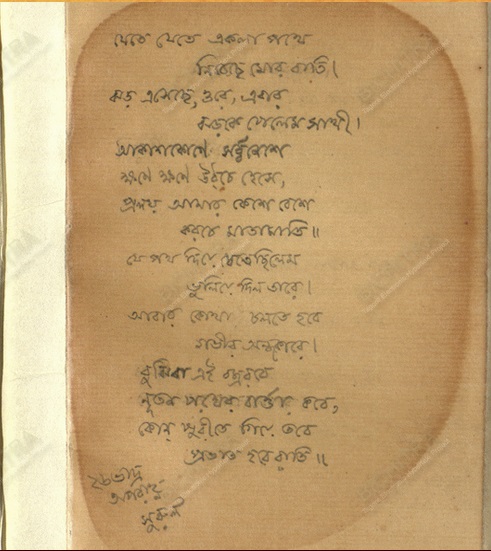 যেতে যেতে একলা পথে
নিবেছে মোর বাতি।
ঝড় এসেছে, ওরে, এবার
ঝড়কে পেলেম সাথী।
আকাশকোণে সর্ব্বনেশে
ক্ষণে ক্ষণে উঠচে হেসে,
প্রলয় আমার কেশে বেশে
করচে মাতামাতি॥
যে পথ দিয়ে যেতেছিলেম
ভুলিয়ে দিল তারে।
আবার কোথা চলতে হবে
গভীর অন্ধকারে।
বুঝিবা এই বজ্ররবে
নূতন পথের বার্ত্তা কবে,
কোন্ পুরীতে গিয়ে তবে
প্রভাত হবে রাতি॥
২৮ ভাদ্র
অপরাহ্ন
সুরুল